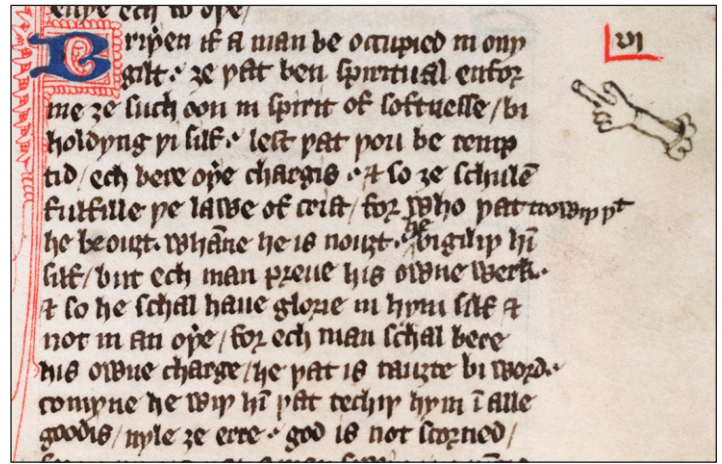 enuye ech to oþe/
Briþen if a man be occupied in ony
vi
gilt· ȝe þat ben spiritual enfor
me ȝe such oon in spirit of softnesse/bi
holdyng þi silf· lest þat þou be temp
tid/ech bere oþe chargis· ⁊ so ȝe schulē
fulfille þe lawe of crist/ for who þat trowiþ þᵗ
he be ouȝt· whāne he is nouȝt· he bigiliþ hī
silf/ but ech man preue his owne werk·
⁊ so he schal haue glorie in hym silf ⁊
not in an oþe/ for ech man schal bere
his owne charge/ he þat is tauȝte bi word·
comyne he wiþ hī þat techiþ hym ī alle
goodis/ nyle ȝe erre· god is not scorned/